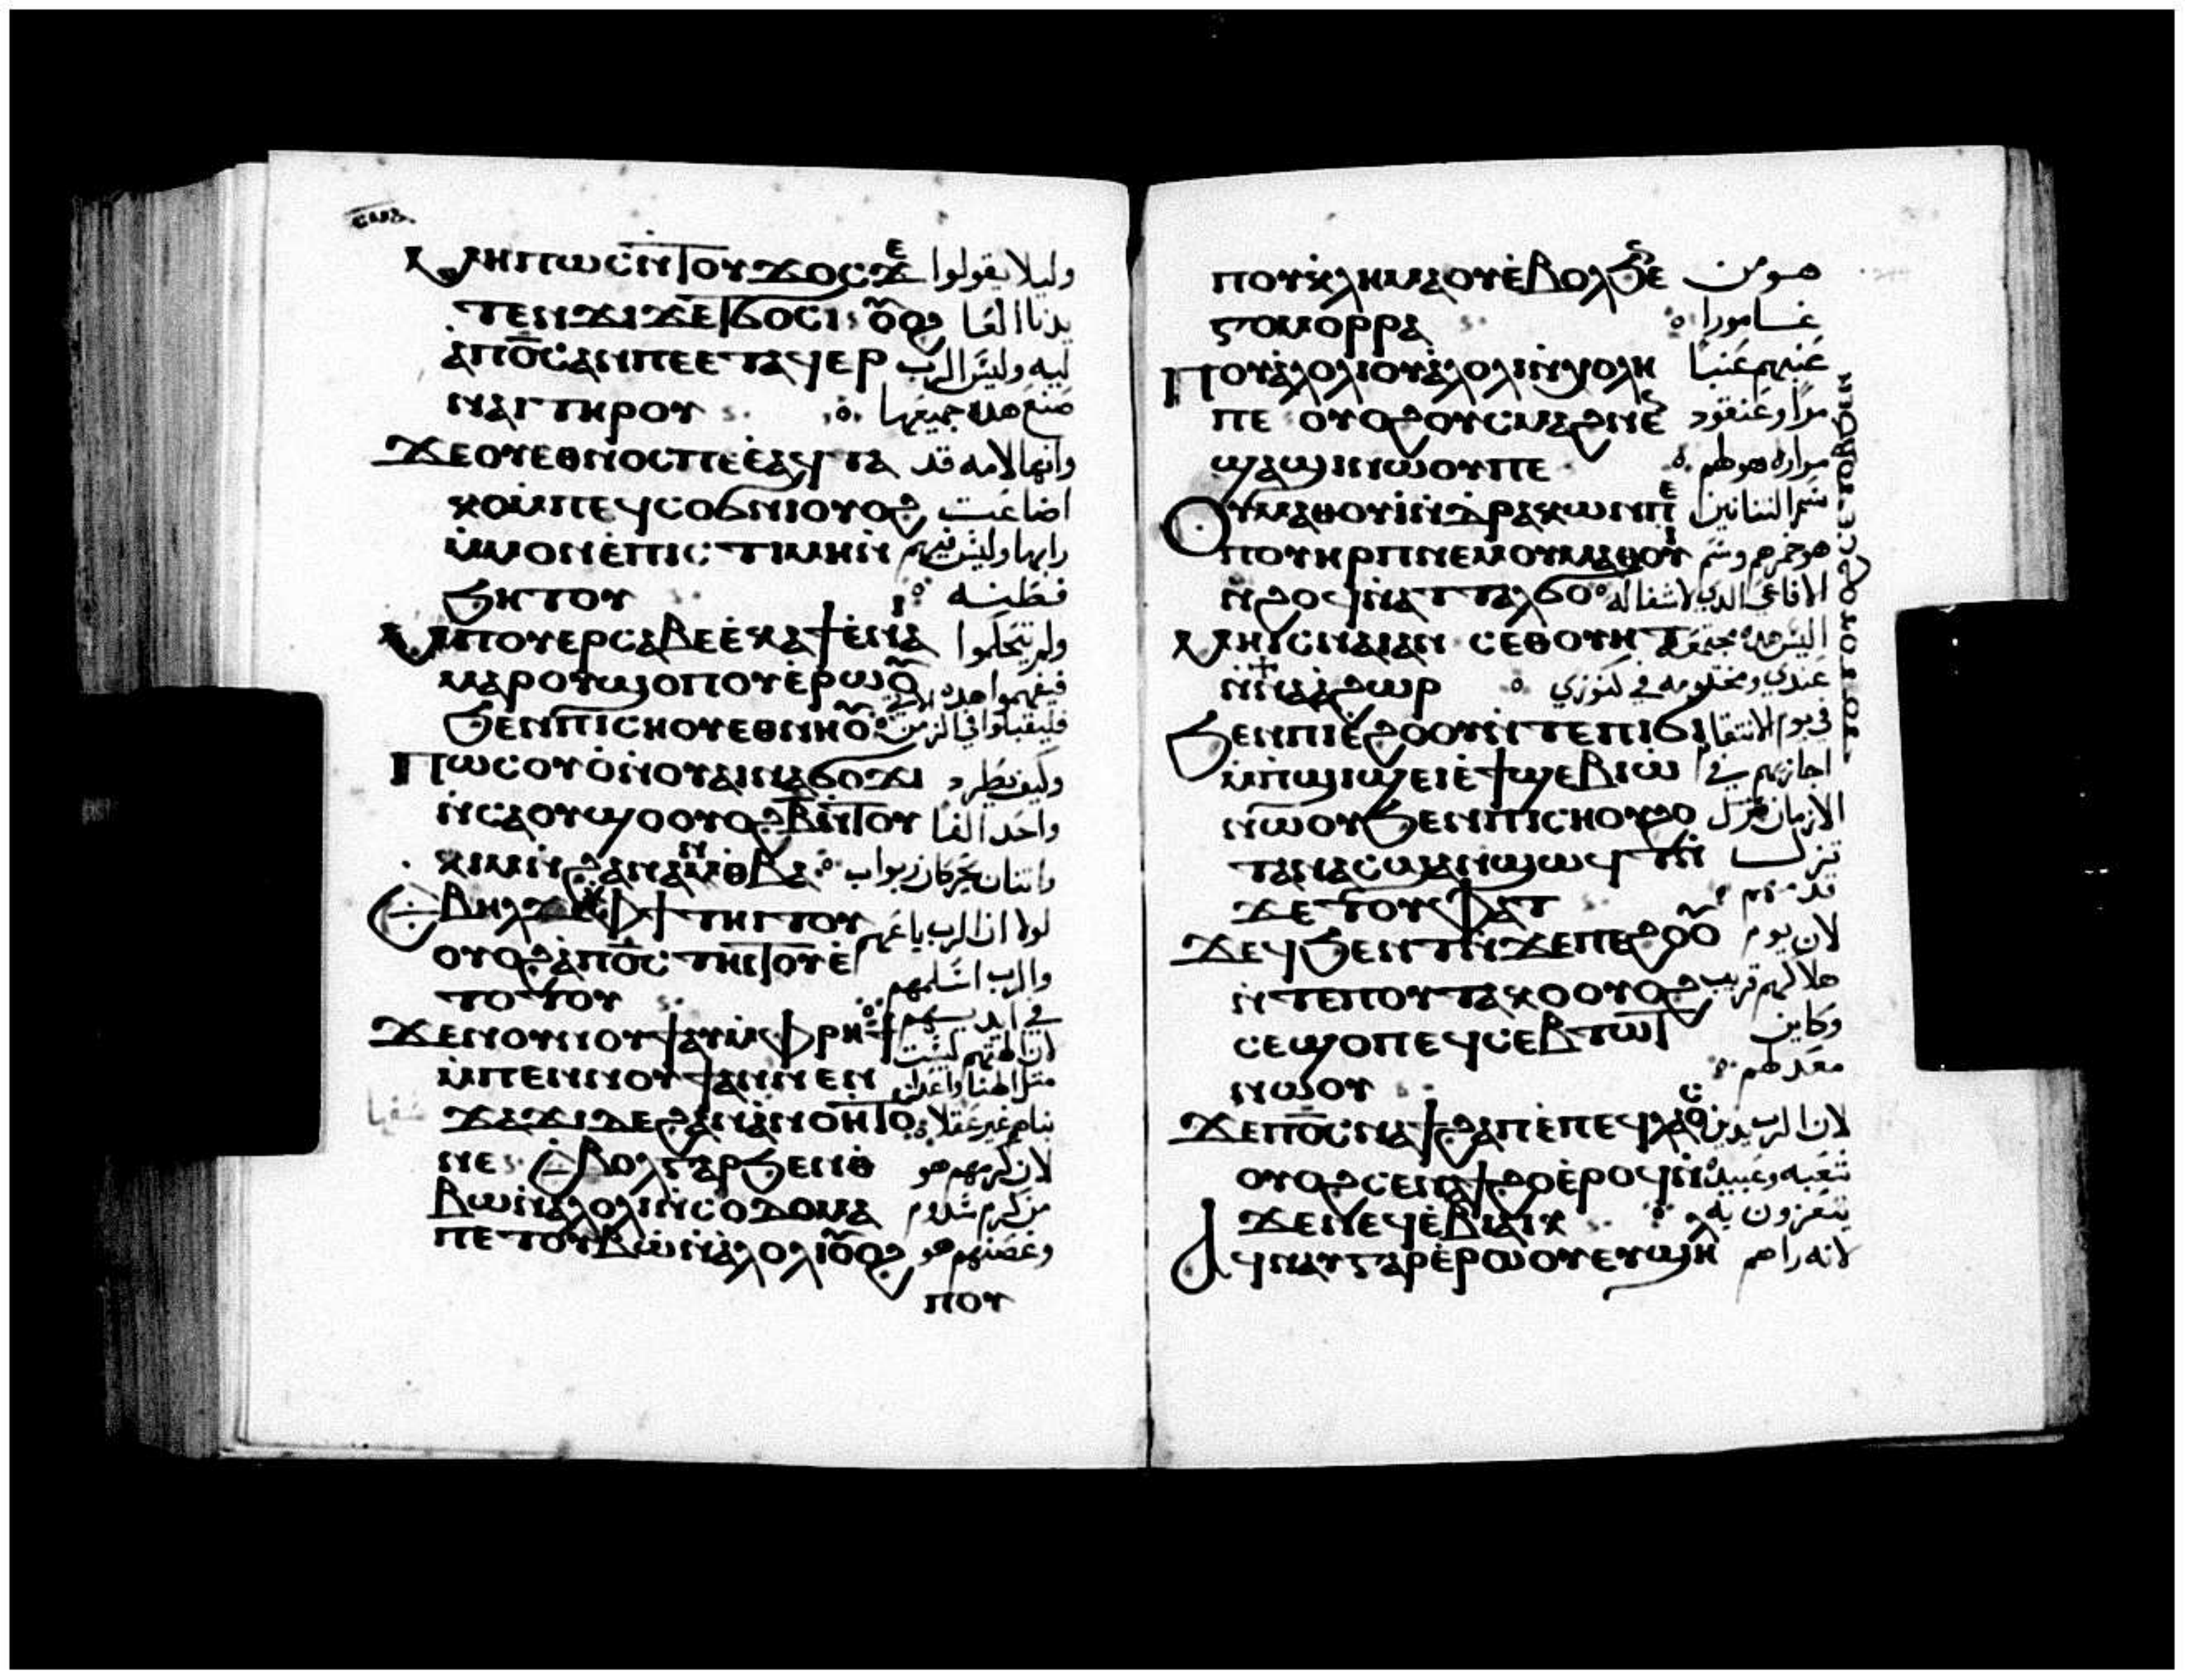 ⲙⲏⲡⲱⲥⲛ̀ⲧⲟⲩϫⲟⲥϫⲉ وليلا يقولوا
ⲧⲉⲛϫⲓϫⲉⲧϭⲟⲥⲓ ⲟⲩⲟϩ يدنا العا
ⲁⲡⲟ̅ⲥ̅ⲁⲛⲡⲉⲉⲧⲁϥⲉⲣ ليه وليس الرب
ⲛⲁⲓⲧⲏⲣⲟⲩ صنع هده جميعها
ϫⲉⲟⲩⲉⲑⲛⲟⲥⲡⲉⲉ̀ⲁϥⲧⲁ وانها لامه قد
ⲕⲟⲙ̀ⲡⲉϥⲥⲟϭⲛⲓⲟⲩⲟϩ اضاعت
ⲙ̀ⲙⲟⲛⲉ̀ⲡⲓⲥⲧⲓⲙⲏⲛ̀ رايها وليس فيهم
ϧⲏⲧⲟⲩ فطنه
ⲙ̀ⲡⲟⲩⲉⲣⲥⲁⲃⲉⲉ̀ⲕⲁϯⲉ̀ⲛⲁⲓ ولم يتحكموا
ⲙⲁⲣⲟⲩϣⲟⲡⲟⲩⲉ̀ⲣⲱⲟⲩ فيفهموا هده
ϧⲉⲛⲡⲓⲥⲏⲟⲩⲉⲑⲛⲏⲟⲩ فليقبلوا في الزمن
ⲡⲱⲥⲟⲩⲟ̀ⲛⲟⲩⲁⲓⲛⲁϭⲟϫⲓ وكيف يطرد
ⲛ̀ⲥⲁⲟⲩϣⲟⲟⲩⲟϩⲃ̅ⲛ̀ⲧⲟⲩ واحد الفا
ⲕⲓⲙⲛ̀ϩⲁⲛⲁⲛⲑⲃⲁ واتنان يحركان ربواب
ⲉ̀ⲃⲏⲗϫⲉⲫϯⲧⲏⲓⲧⲟⲩ لولا ان الرب باعهم
ⲟⲩⲟϩⲁ̀ⲡⲟ̅ⲥ̅ⲧⲏⲓⲧⲟⲩⲉ̀ والرب اسلمهم
ⲧⲟⲧⲟⲩ في ايديهم
ϫⲉⲛⲟⲩⲛⲟⲩϯⲁⲛⲙ̀ⲫⲣⲏϯ لان الهتهم ليست
ⲙ̀ⲡⲉⲛⲛⲟⲩϯⲁⲛⲛⲉⲛ مثل الهنا واعداو
ϫⲁϫⲓⲇⲉϩⲁⲛⲁⲛⲟⲏⲧⲟ ناهم غير عقلا
ⲛⲉ ⲉ̀ⲃⲟⲗⲅⲁⲣϧⲉⲛⲑ لان كرمهم هو
ⲃⲱⲛ̀ⲁⲗⲟⲗⲓⲛ̀ⲥⲟⲇⲟⲙⲁ من كرم سدوم
ⲡⲉⲧⲟⲩⲃⲱⲛ̀ⲁⲗⲟⲗⲓⲟⲩⲟϩ وغصنهم هو
ⲡⲟⲩ
ⲡⲟⲩⲕ̀ⲗⲏⲙⲁⲟⲩⲉ̀ⲃⲟⲗϧⲉ هو من
ⲅⲟⲙⲟⲣⲣⲁ غامورا
ⲡⲟⲩⲁⲗⲟⲗⲓⲟⲩⲁⲗⲟⲗⲓⲛ̀ϣⲟⲗⲏ عنبهم عنبا
ⲡⲉ ⲟⲩⲟϩⲟⲩⲥⲙⲁϩⲛⲉ̀ مرا وعنقود
ϣⲁϣⲓⲛⲱⲟⲩⲡⲉ مراره هو لهم
ⲟⲩⲙⲁⲑⲟⲩⲓ̀ⲛ̀ⲇⲣⲁⲕⲱⲛⲡⲉ سم التنانين
ⲡⲟⲩⲏⲣⲡⲛⲉⲙⲟⲩⲙⲁⲑⲟⲩⲓ هو خمرهم وسم
ⲛ̀ϩⲟϥⲛ̀ⲁⲧⲧⲁⲗϭⲟ الافاعي الدي لا شفا له
ⲙⲏⲓⲥⲛⲁⲓⲁⲛ ⲥⲉⲑⲟⲩⲏⲧ اليس هده مجتمعه
ⲛ̀ⲛⲁⲁϩⲱⲣ عندي ومختومه في كنوزي
ϧⲉⲛⲡⲓⲉ̀ϩⲟⲟⲩⲛ̀ⲧⲉⲡⲓϭⲓ في يوم الانتقا
ⲙ̀ⲡϣⲓϣⲉⲓⲉ̀ϯϣⲉⲃⲓⲱ̀ اجازيهم في
ⲛⲱⲟⲩϧⲉⲛⲡⲓⲥⲏⲟⲩϩⲟ الازمان
ⲧⲁⲛⲁⲥⲙⲁⲛϣⲱϥⲧⲛ̀ تزل
ϫⲉⲧⲟⲩⲫⲁⲧ قدمهم
ϫⲉϥϧⲉⲛⲧⲛ̀ϫⲉⲡⲉϩⲟⲟⲩ لان يوم
ⲛ̀ⲧⲉⲡⲟⲩⲧⲁⲕⲟⲟⲩⲟϩ هلاكهم قريب
ⲥⲉϣⲟⲡⲉϥⲥⲉⲃⲧⲱⲧ وكاين
ⲛⲱⲟⲩ معد لهم
ϫⲉⲡⲟ̅ⲥ̅ⲛⲁϯϩⲁⲡⲉ̀ⲡⲉϥⲗⲁⲟⲥ لان الرب يدين
ⲟⲩⲟϩⲥⲉⲛⲁϯϩⲟⲉ̀ⲣⲟϥⲛ̀ شعبه وعبيده
ϫⲉⲛⲉϥⲉ̀ⲃⲓⲁⲓⲕ يتعزون به
ⲁϥⲛⲁⲩⲅⲁⲣⲉ̀ⲣⲱⲟⲩⲉⲩϣⲏⲗ لانه راهم